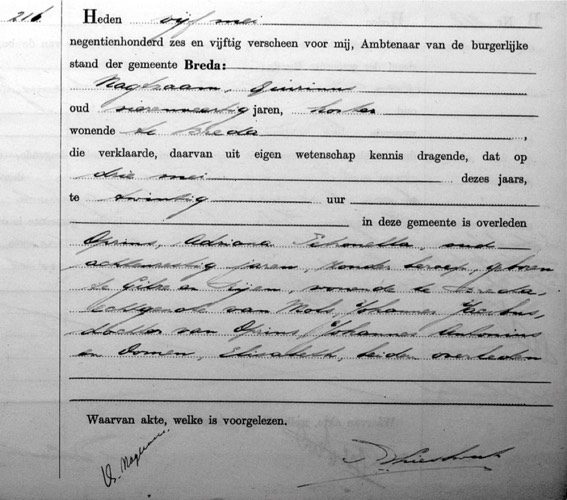 216.
Heden vijf mei
negentienhonderd zes en vijftig verscheen voor mij, Ambtenaar van de burgerlijke
stand der gemeente Breda:
Nagtzaam, Quirinus
oud vierenveertig jaren, koster
wonende te Breda,
die verklaarde, daarvan uit eigen wetenschap kennis dragende, dat op
drie mei dezes jaars,
te twintig uur
in deze gemeente is overleden
Oprins, Adriana oud
achtenzestig jaren, zonder beroep, geboren
te Gilze en Rijen, wonende te Breda,
echtgenote van Mols, Johannes Jacobus,
dochter van Oprins, Johannes Antonius
en Domen, Elisabeth, beiden overleden
Waarvan akte, welke is voorgelezen.